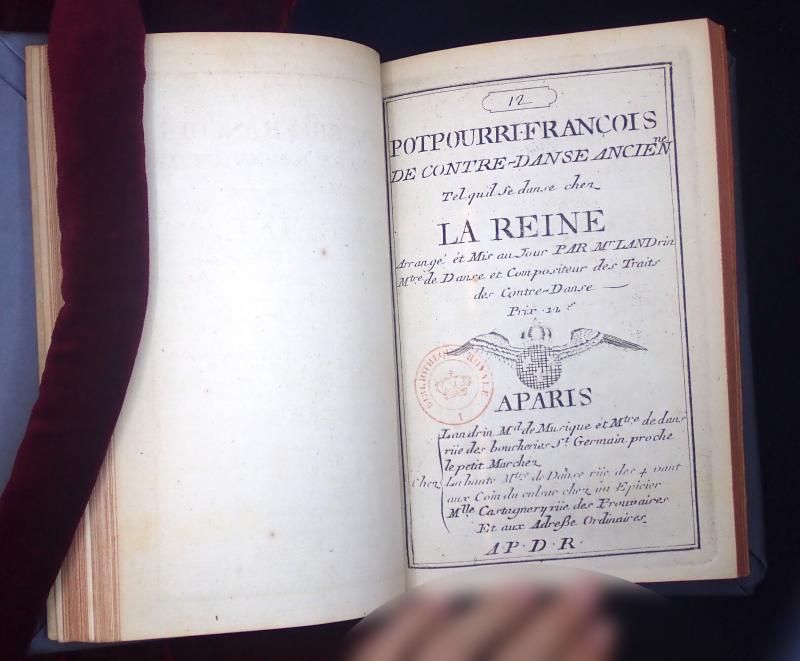 12
POTPOURRI·FRANÇOIS
DE CONTRE-DANSE ANCIENne
Tel quil se danse chez
LA REINE
Arrangé ét Mis au Jour PAR Mr LANDrin
Mtre de Danse et Compositeur des Traits
des Contre-Danse
Prix 12 s
BIBLIOTHEQUE ROYALE
APARIS
Landrin Md de Musique et Mtre de dans
rüe des boucheries St Germain proche
le petit Marchez
Chez La hante Mtre de Danse rüe des 4 vant
aux Coin du culeur chez un Epicier
Mlle Castagnery rüe des Prouvaires
Et aux Adreße Ordinaires
A·P·D·R·